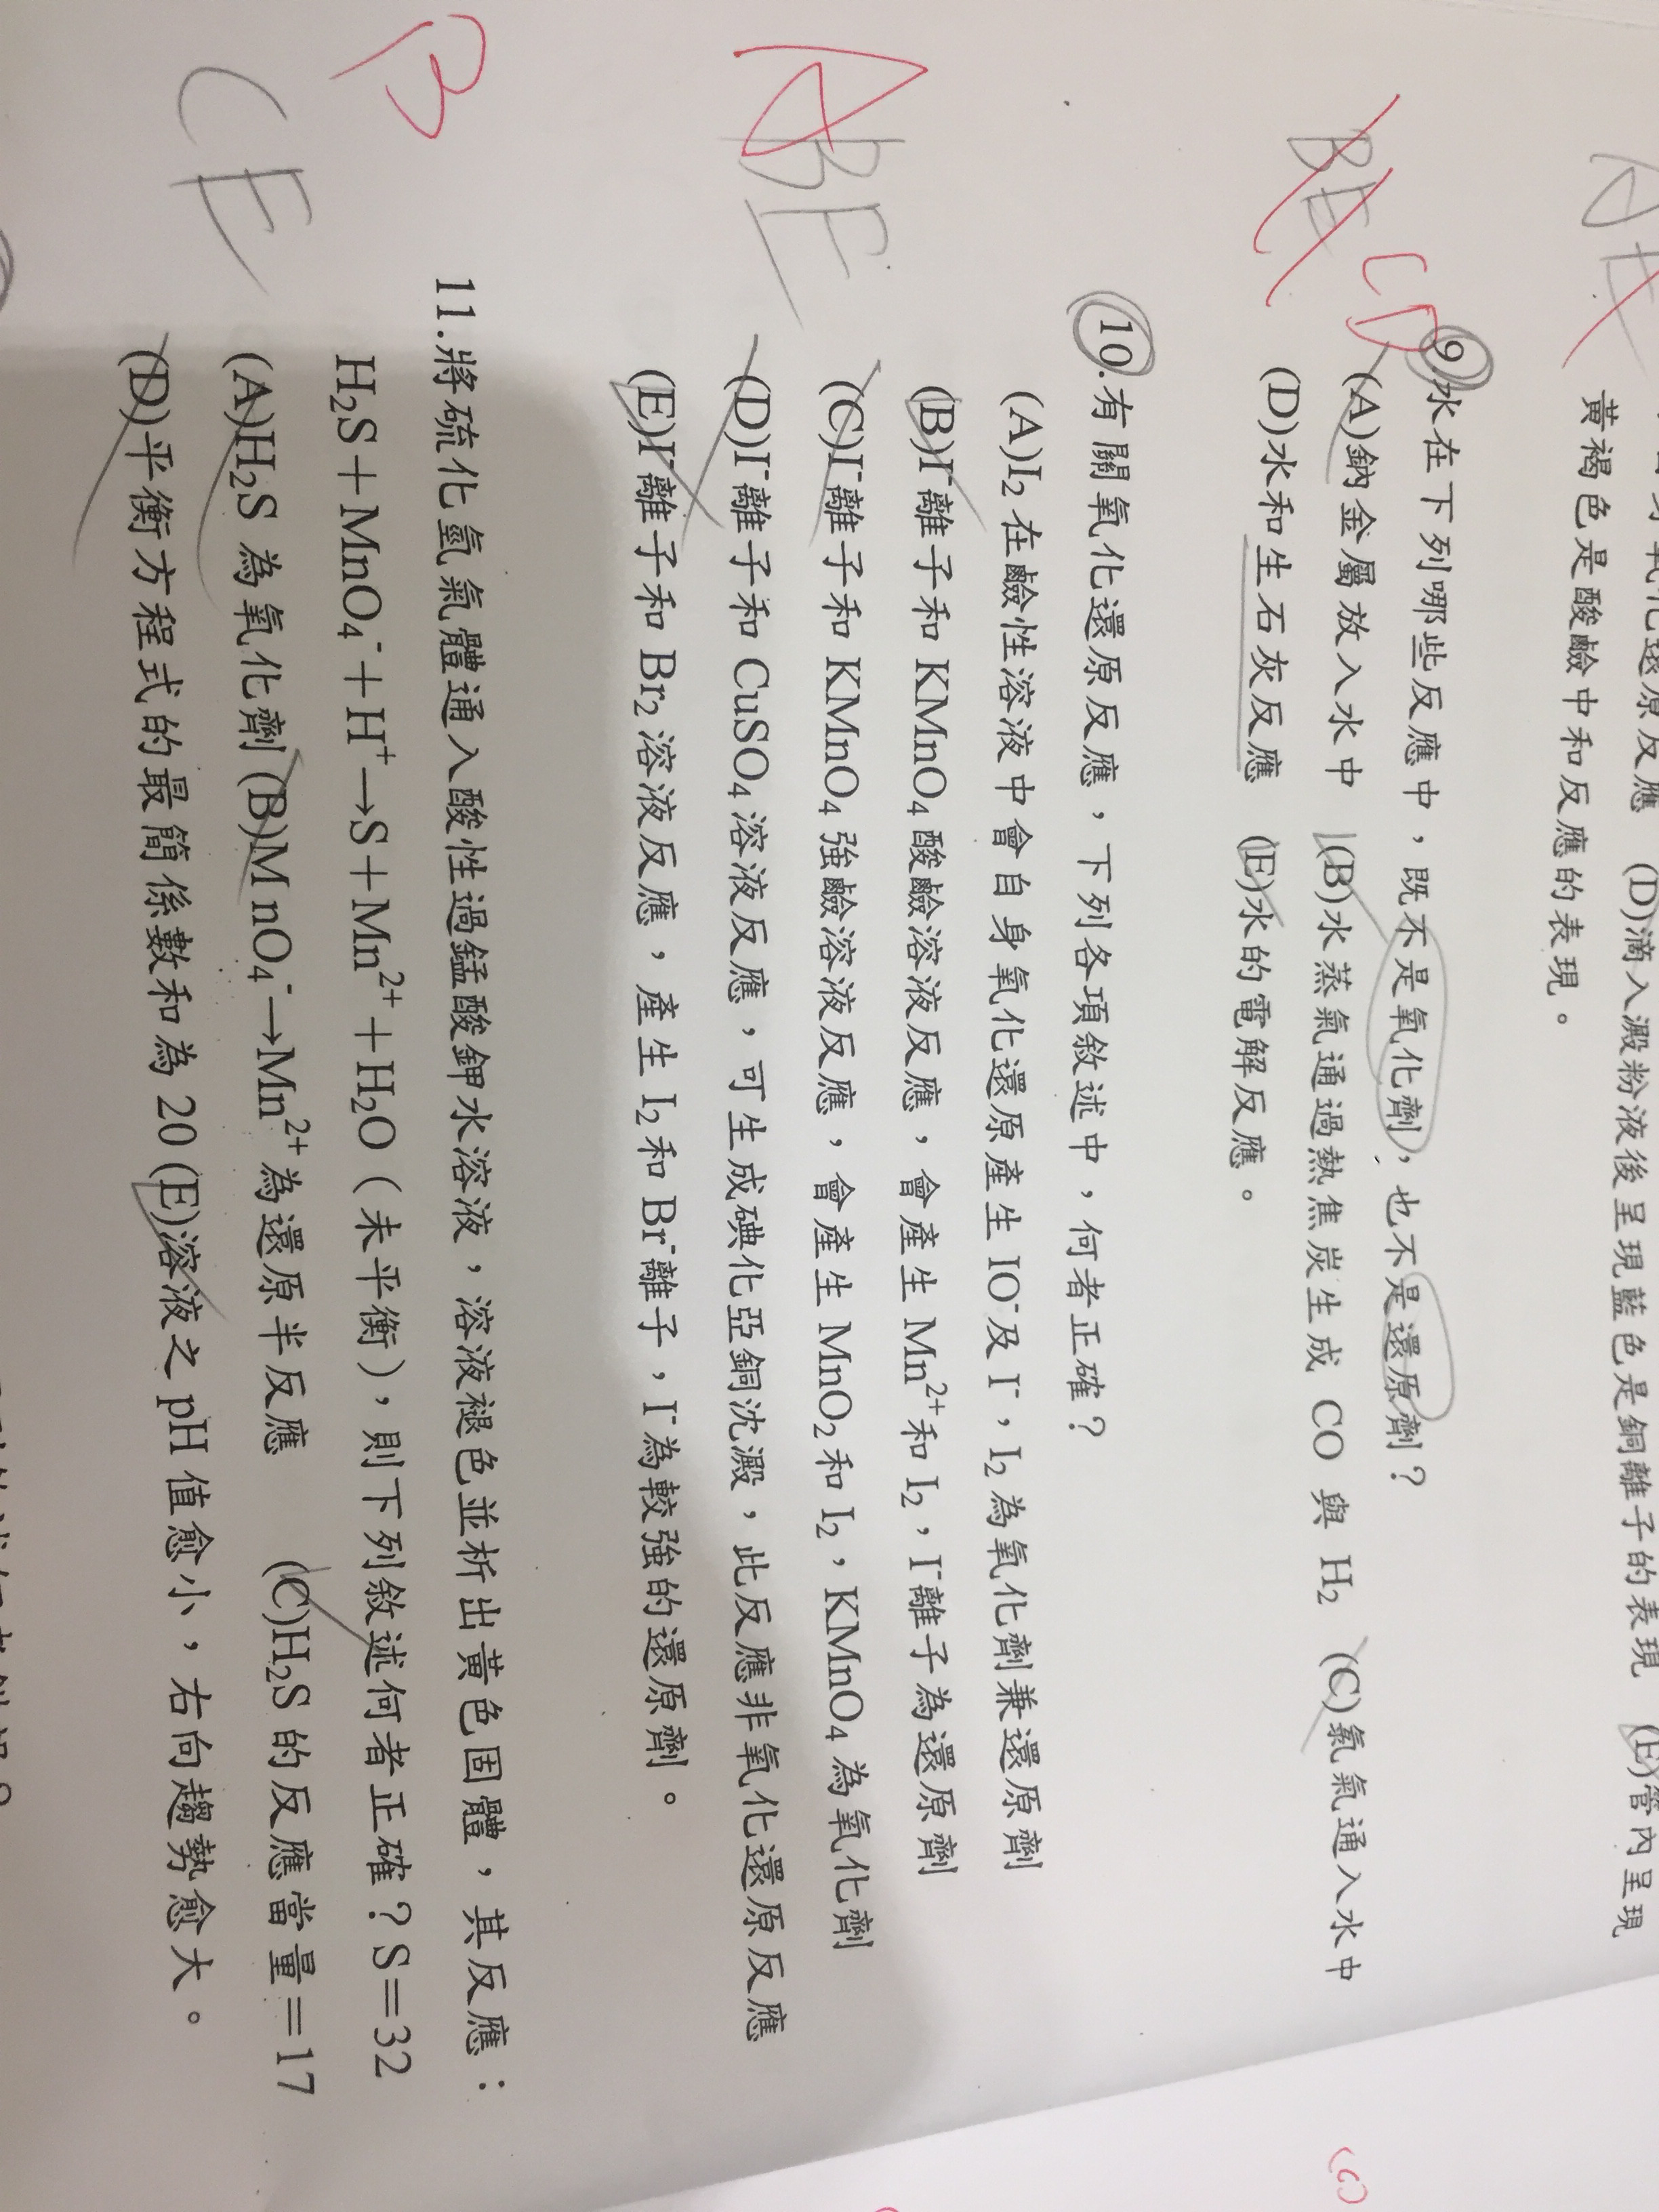 (D)滴入澱粉液後呈現藍色是銅離子的表現 (E)管內呈現
黃褐色是酸鹼中和反應的表現。
AE
BE
CD
9.水在下列哪些反應中，既不是氧化劑，也不是還原劑？
(A)鈉金屬放入水中 (B)水蒸氣通過熱焦炭生成 CO 與 H₂ (C)氯氣通入水中
(D)水和生石灰反應 (E)水的電解反應。
A
BE
10.有關氧化還原反應，下列各項敘述中，何者正確？
(A)I₂在鹼性溶液中會自身氧化還原產生 IO⁻及 I⁻，I₂為氧化劑兼還原劑
(B)I⁻離子和 KMnO₄酸鹼溶液反應，會產生 Mn²⁺和 I₂，I⁻離子為還原劑
(C)I⁻離子和 KMnO₄強鹼溶液反應，會產生 MnO₂和 I₂，KMnO₄為氧化劑
(D)I⁻離子和 CuSO₄溶液反應，可生成碘化亞銅沈澱，此反應非氧化還原反應
(E)I⁻離子和 Br₂溶液反應，產生 I₂和 Br⁻離子，I⁻為較強的還原劑。
B
CE
11.將硫化氫氣體通入酸性過錳酸鉀水溶液，溶液褪色並析出黃色固體，其反應：
H₂S＋MnO₄⁻＋H⁺→S＋Mn²⁺＋H₂O（未平衡），則下列敘述何者正確？S＝32
(A)H₂S 為氧化劑 (B)MnO₄⁻→Mn²⁺為還原半反應 (C)H₂S 的反應當量＝17
(D)平衡方程式的最簡係數和為 20 (E)溶液之 pH 值愈小，右向趨勢愈大。